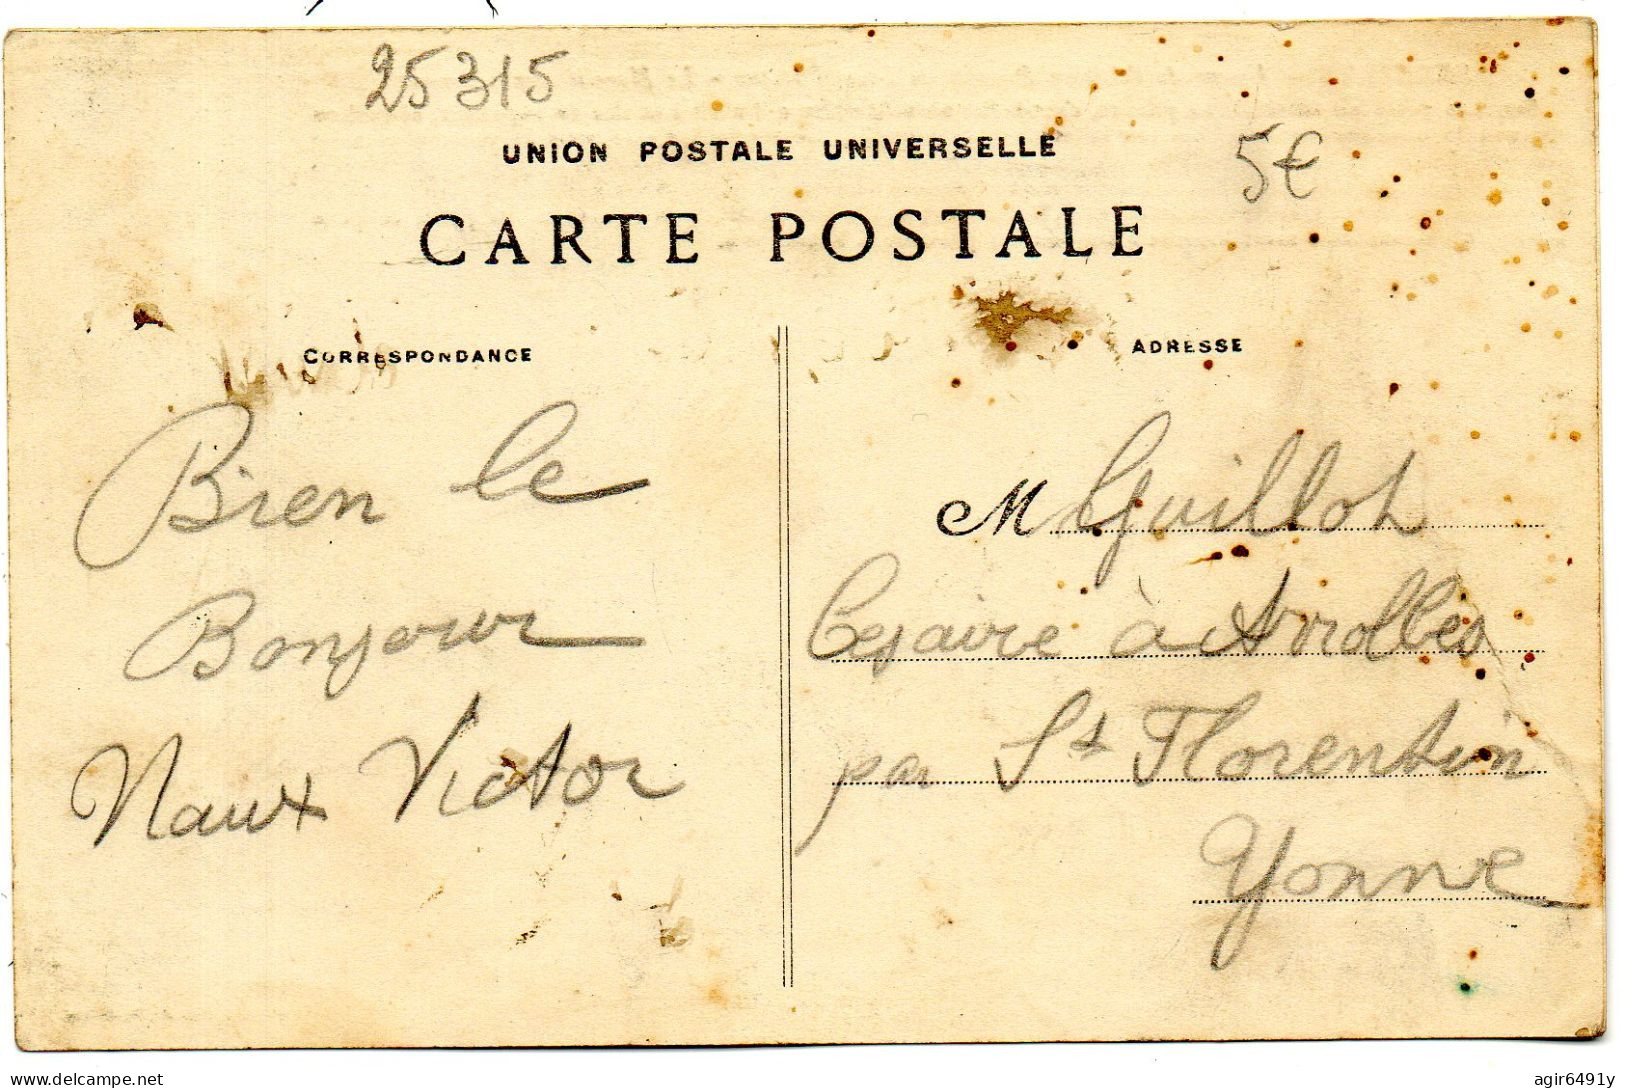 25315
UNION POSTALE UNIVERSELLE
5€
CARTE POSTALE
CORRESPONDANCE
Bien le
Bonjour
Naux Victor
ADRESSE
M Guillot
Cesaire à Avrolles
par St Florentin
Yonne
delcampe.net
agir6491y